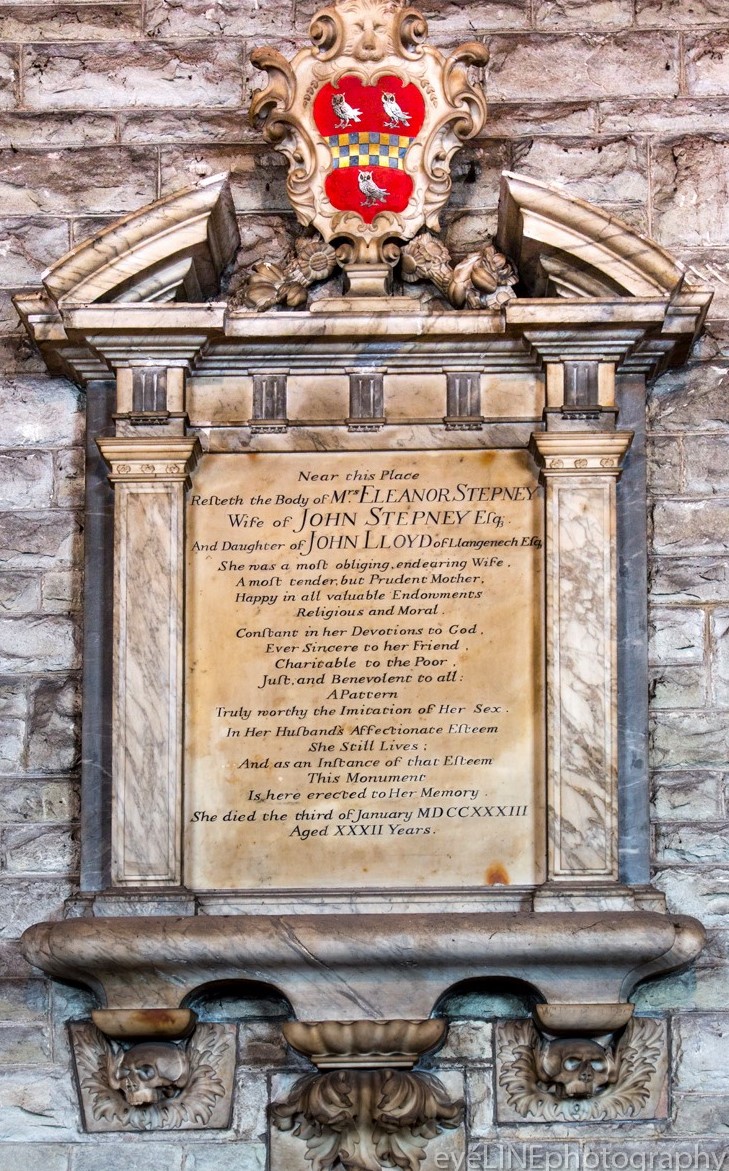 Near this Place
Reſteth the Body of Mrs. ELEANOR STEPNEY
Wife of JOHN STEPNEY Eſq;.
And Daughter of JOHN LLOYD of Llangenech Eſq;
She was a moſt obliging, endearing Wife,
A moſt tender, but Prudent Mother,
Happy in all valuable Endowments
Religious and Moral.
Conſtant in her Devotions to God,
Ever Sincere to her Friend,
Charitable to the Poor,
Juſt, and Benevolent to all:
A Pattern
Truly worthy the Imitation of Her Sex.
In Her Huſband's Affectionate Eſteem
She Still Lives;
And as an Inſtance of that Eſteem
This Monument
Is here erected to Her Memory.
She died the third of January MDCCXXXIII
Aged XXXII Years.
eyeLINEphotography